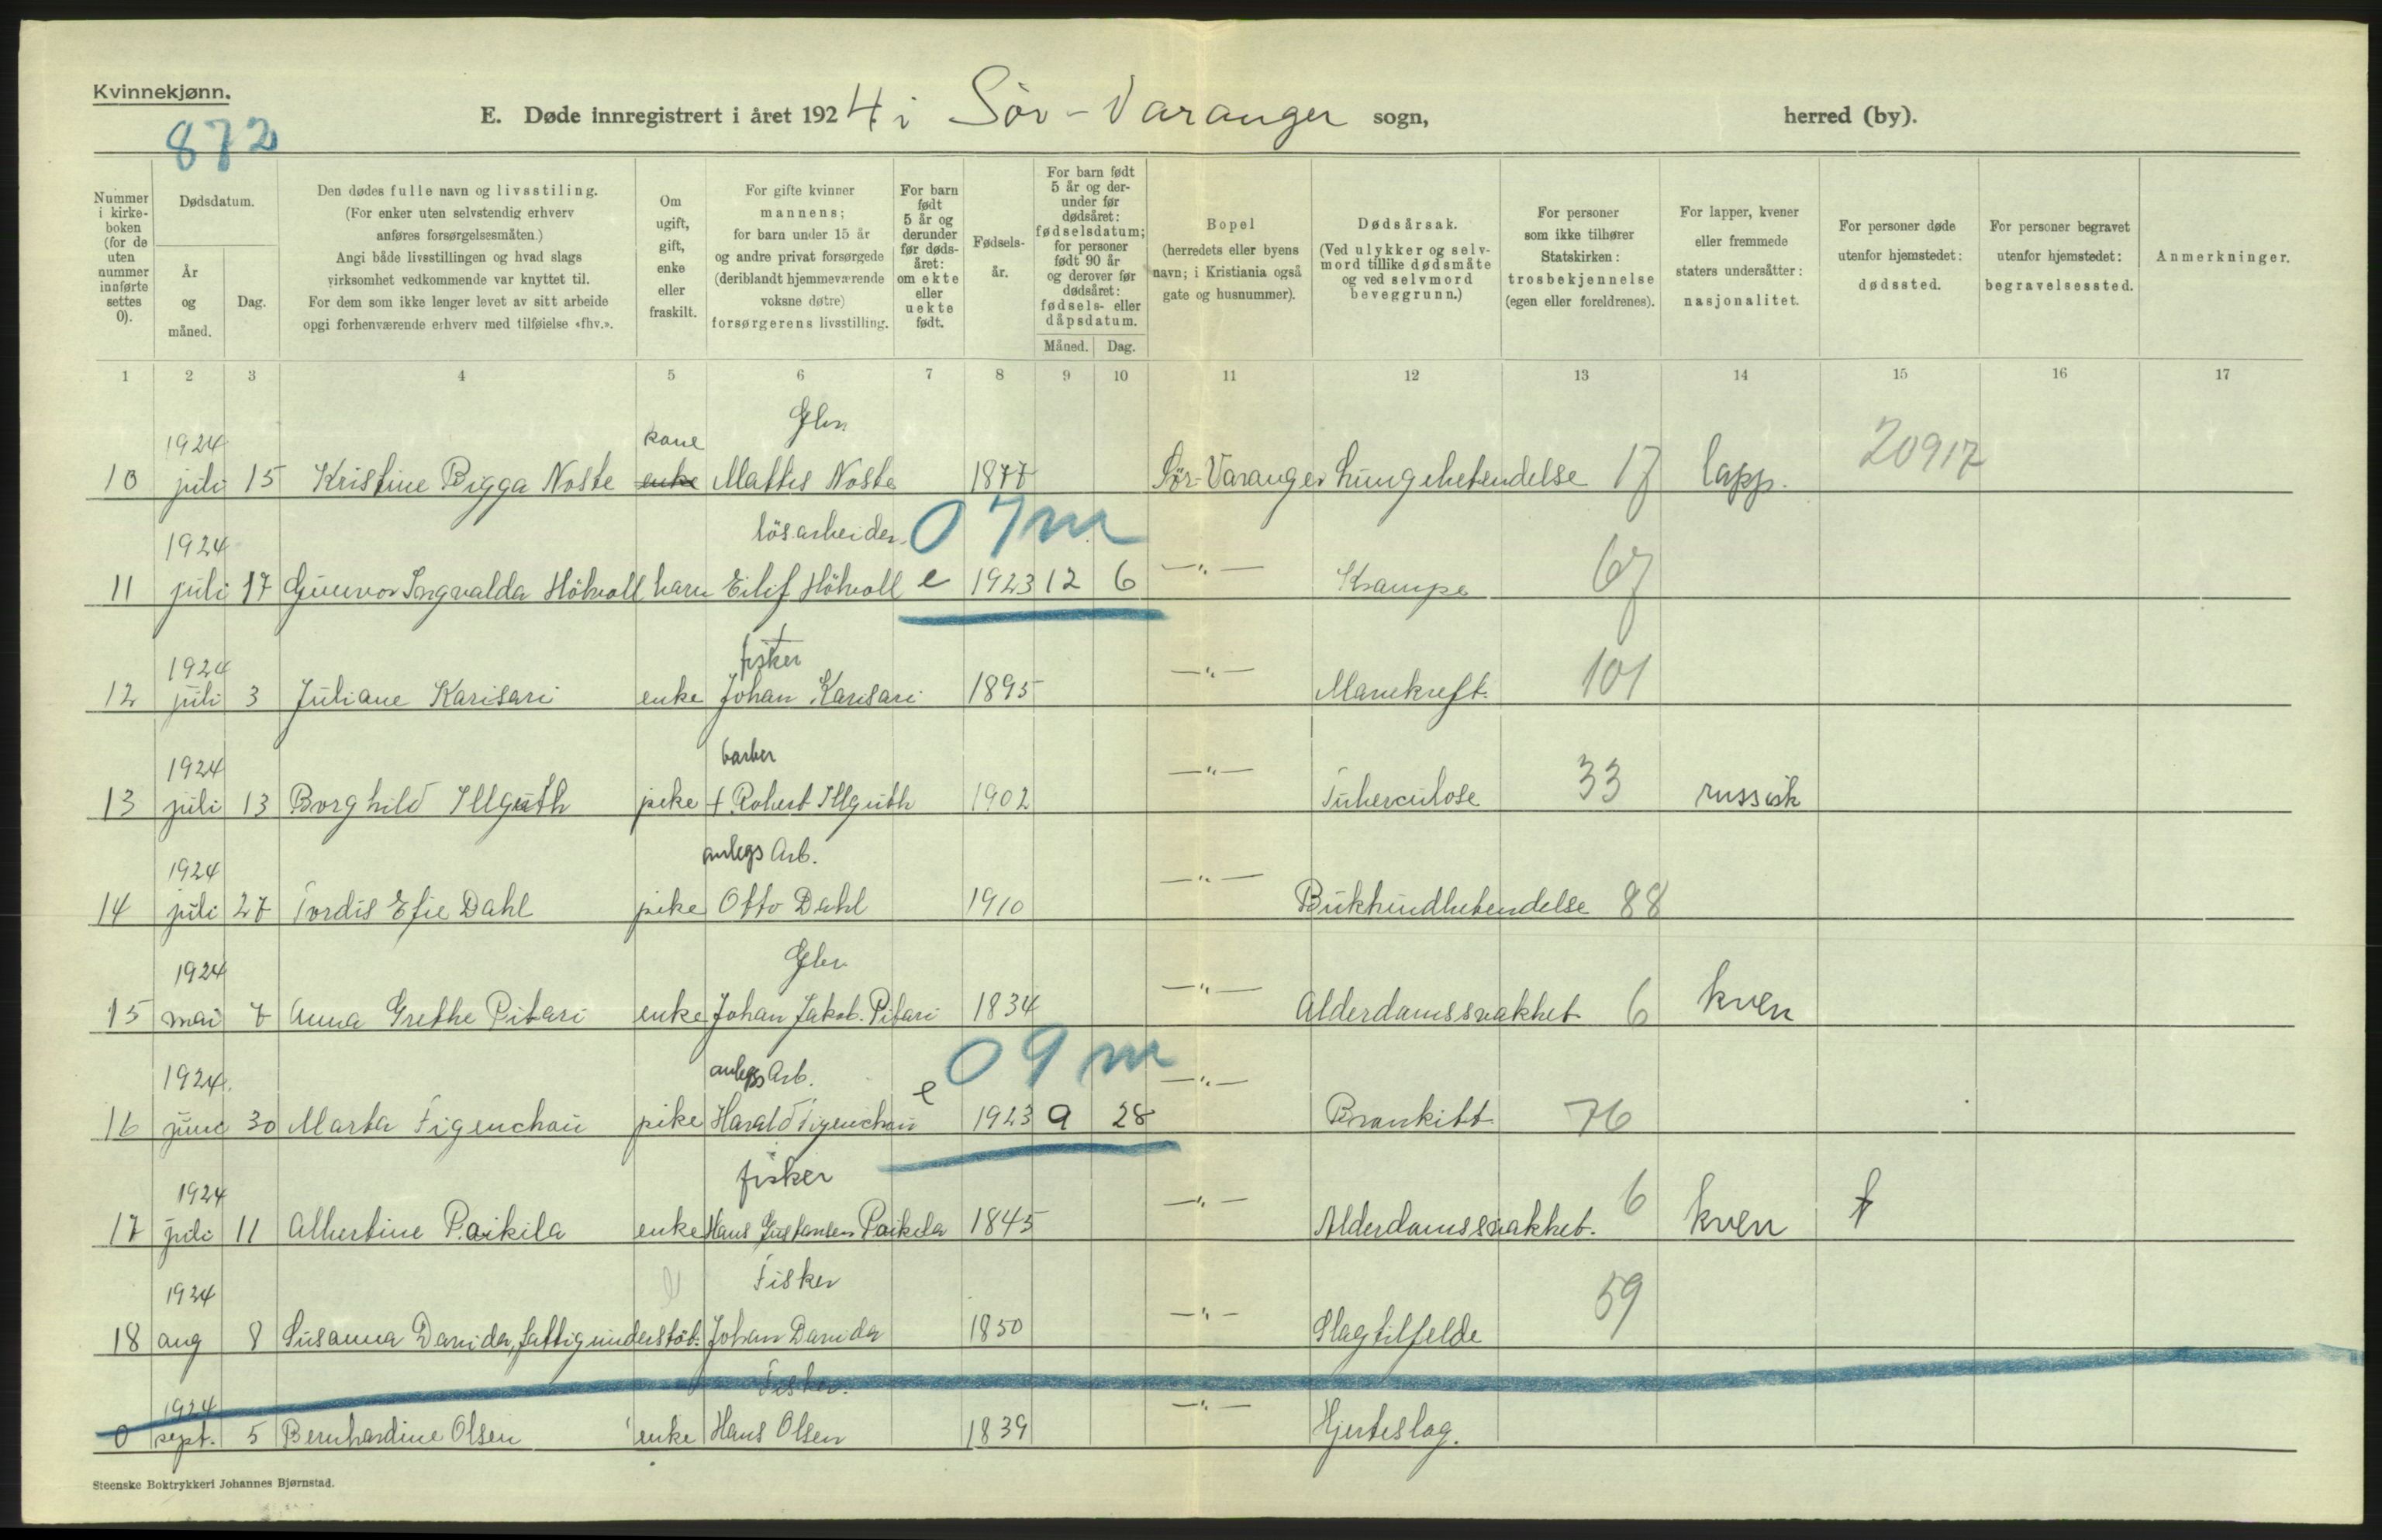 Kvinnekjønn.
872
E. Døde innregistrert i året 1924 i Sör-Varanger sogn, herred (by).
Nummer i kirke- boken (for de uten nummer innførte settes 0).
Dødsdatum.
År og måned.
Dag.
Den dødes fulle navn og livsstiling.
(For enker uten selvstendig erhverv
anføres forsørgelsesmåten.)
Angi både livsstillingen og hvad slags
virksomhet vedkommende var knyttet til.
For dem som ikke lenger levet av sitt arbeide
opgi forhenværende erhverv med tilføielse «fhv.».
Om ugift, gift, enke eller fraskilt.
For gifte kvinner
mannens;
for barn under 15 år
og andre privat forsørgede
(deriblandt hjemmeværende
voksne døtre)
forsørgerens livsstilling.
For barn født 5 år og derunder før døds- året: om ekte eller uekte født.
Fødsels- år.
For barn født 5 år og der- under før dødsåret: fødselsdatum; for personer født 90 år og derover før dødsåret: fødsels- eller dåpsdatum.
Måned. Dag.
Bopel
(herredets eller byens
navn; i Kristiania også
gate og husnummer).
Dødsårsak.
(Ved ulykker og selv-
mord tillike dødsmåte
og ved selvmord
beveggrunn.)
For personer
som ikke tilhører
Statskirken:
trosbekjennelse
(egen eller foreldrenes).
For lapper, kvener
eller fremmede
staters undersåtter:
nasjonalitet.
For personer døde
utenfor hjemstedet:
dødssted.
For personer begravet
utenfor hjemstedet:
begravelsessted.
Anmerkninger.
1 2 3 4 5 6 7 8 9 10 11 12 13 14 15 16 17
1924 kone Gbr. 20917
10 juli 15 Kristine Bigga Noste enke Mattis Noste 1877 Sör-Varanger Lungebetendelse 17 lapp.
1924 lösarbeider. 07m
11 juli 17 Gunvor Ingvalda Hökvoll barn Eilif Hökvoll e 1923 12 6 —"— Krampe 67
1924 † fisker
12 juli 3 Juliane Karisari enke Johan Karisari 1895 —"— Mavekreft. 101
1924 barber
13 juli 13 Borghild Illguth pike † Robert Illguth 1902 —"— Tuberculose 33 russisk
1924 anlegs Arb.
14 juli 27 Tordis Efie Dahl pike Otto Dahl 1910 —"— Bukhindbetendelse 88
1924 Gbr.
15 mai 7 Anna Grethe Pitari enke Johan Jakob. Pitari 1834 —"— Alderdomssvakhet 6 kven
1924. anlegs Arb. 09m
16 juni 30 Marta Figenchau pike Harald Figenchau e 1923 9 28 —"— Bronkitt 76
1924 fisker
17 juli 11 Albertine Paikila enke Hans Gustavsen Paikila 1845 —"— Alderdomssvakhet. 6 kven †
1924 Fisker
18 aug 8 Susanna Davida, fattigunderstöt. Johan Davida 1850 —"— Slagtilfelde 59
1924 Fisker.
0 sept. 5 Bernhardine Olsen enke Hans Olsen 1839 —"— Hjerteslag.
Steenske Boktrykkeri Johannes Bjørnstad.